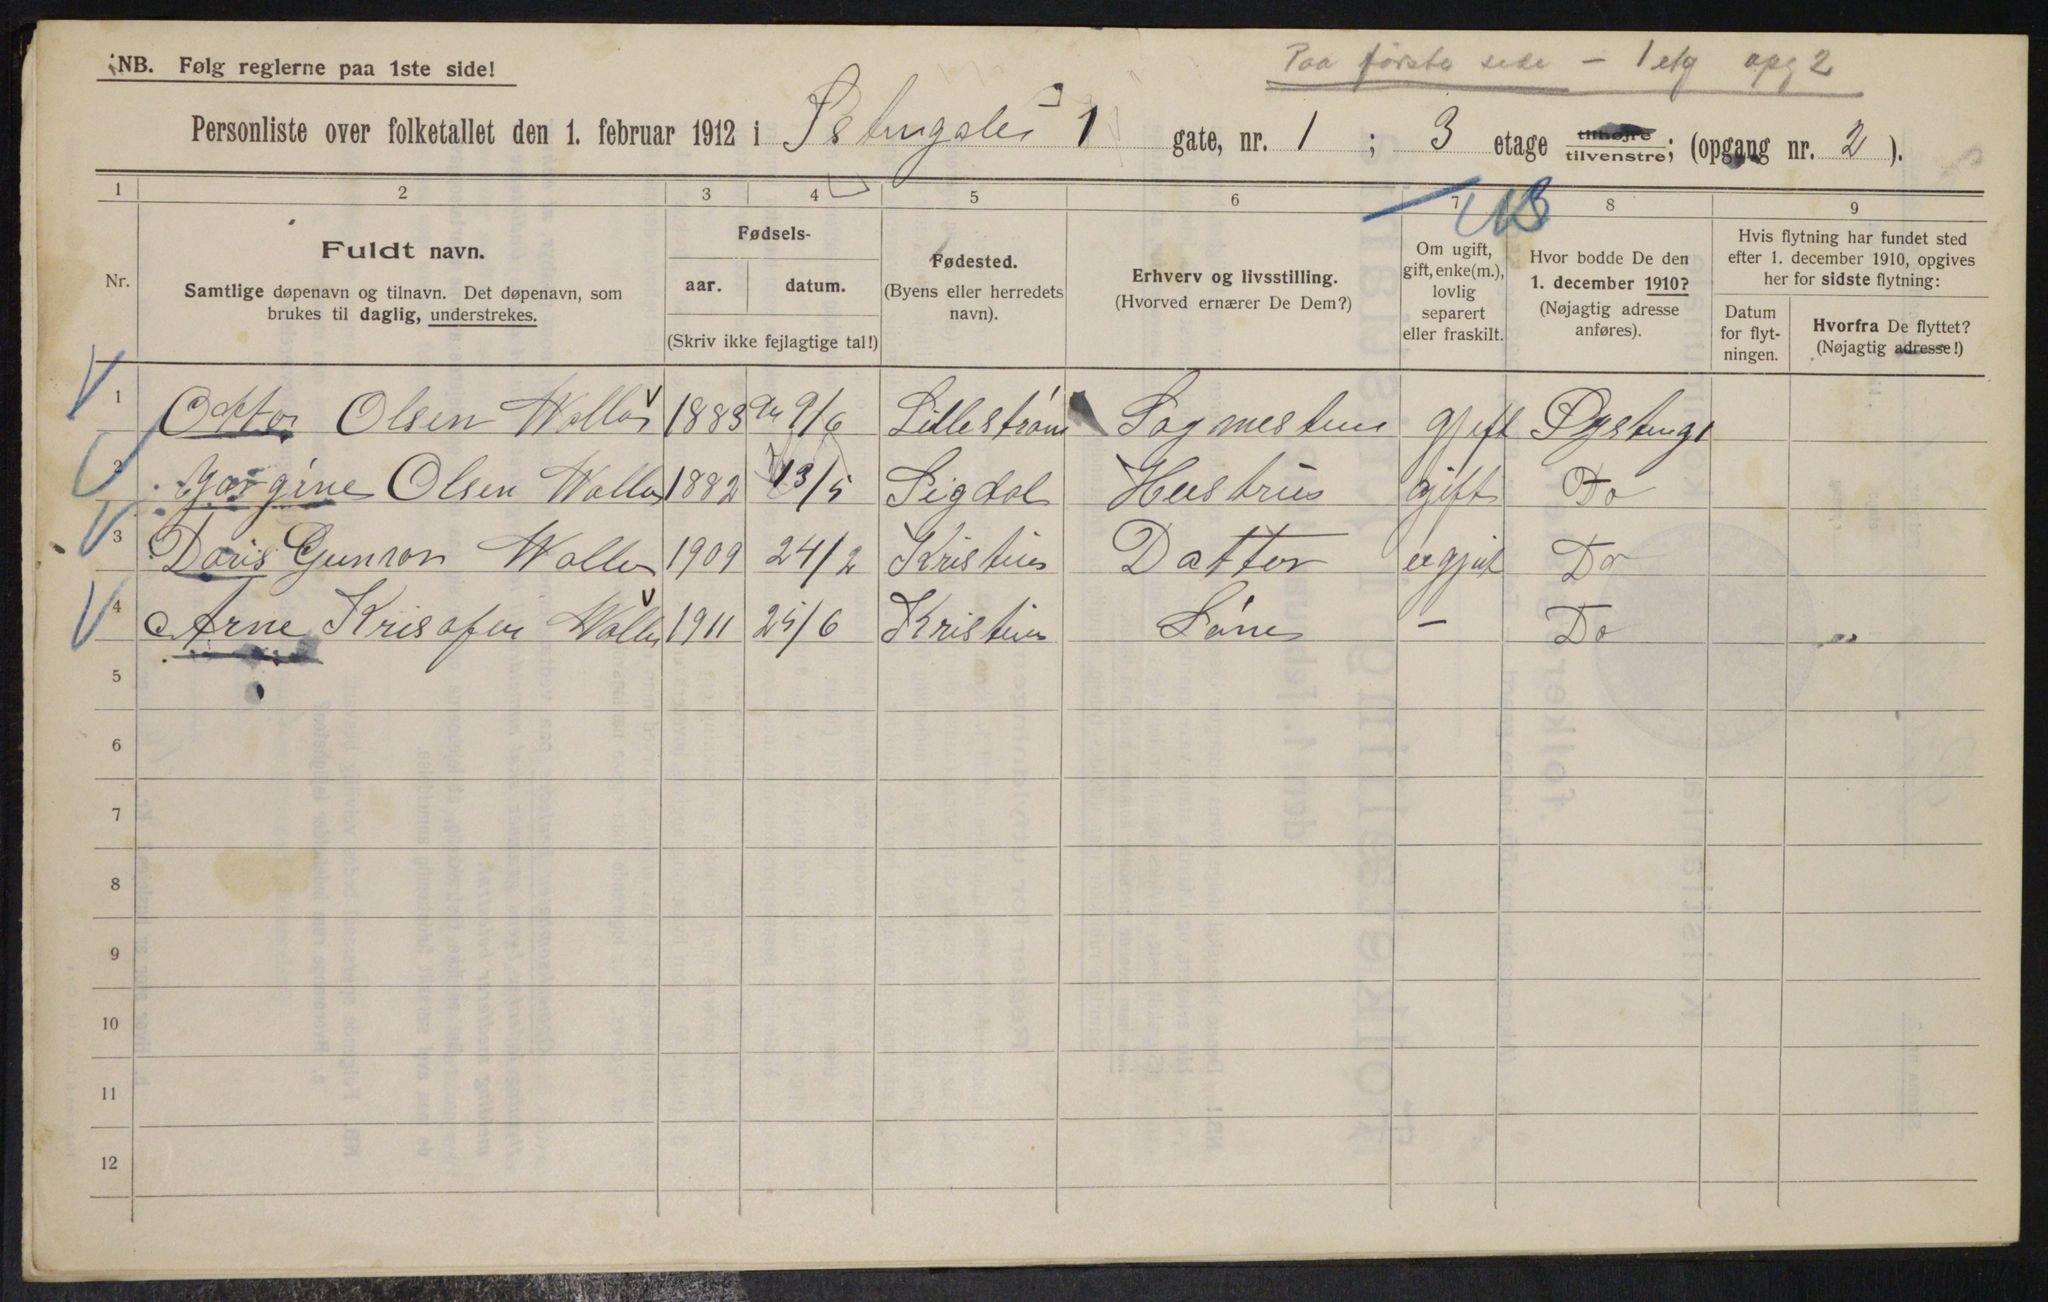 NB. Følg reglerne paa 1ste side!
Paa første side - 1 etg opg 2
Personliste over folketallet den 1. februar 1912 i gate, nr. 1 ; 3 etage tilhøjre tilvenstre; (opgang nr. 2 ).
1 2 3 4 5 6 7 8 9
NB
Nr.
Fuldt navn.
Samtlige døpenavn og tilnavn. Det døpenavn, som
brukes til daglig, understrekes.
Fødsels-
aar. datum.
(Skriv ikke fejlagtige tal!)
Fødested.
(Byens eller herredets
navn).
Erhverv og livsstilling.
(Hvorved ernærer De Dem?)
Om ugift,
gift, enke(m.),
lovlig
separert
eller fraskilt.
Hvor bodde De den
1. december 1910?
(Nøjagtig adresse
anføres).
Hvis flytning har fundet sted
efter 1. december 1910, opgives
her for sidste flytning:
Datum
for flyt-
ningen.
Hvorfra De flyttet?
(Nøjagtig adresse!)
1 Olsen 1883 9/6 Lillestrøm gjift
2 Olsen 1882 13/5 Sigdal Hustru gift Do
3 Doris Gunvor 1909 24/2 Kristia Datter Do
4 Arne Krisofer 1911 25/6 Kristia Søn - Do
5
6
7
8
9
10
11
12